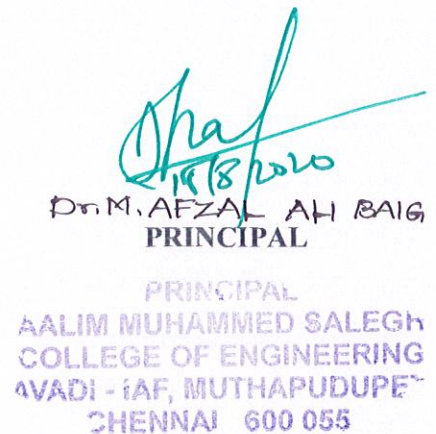 19/8/2020
Dr. M. AFZAL ALI BAIG
PRINCIPAL
PRINCIPAL
AALIM MUHAMMED SALEGH
COLLEGE OF ENGINEERING
AVADI - IAF, MUTHAPUDUPET
CHENNAI 600 055